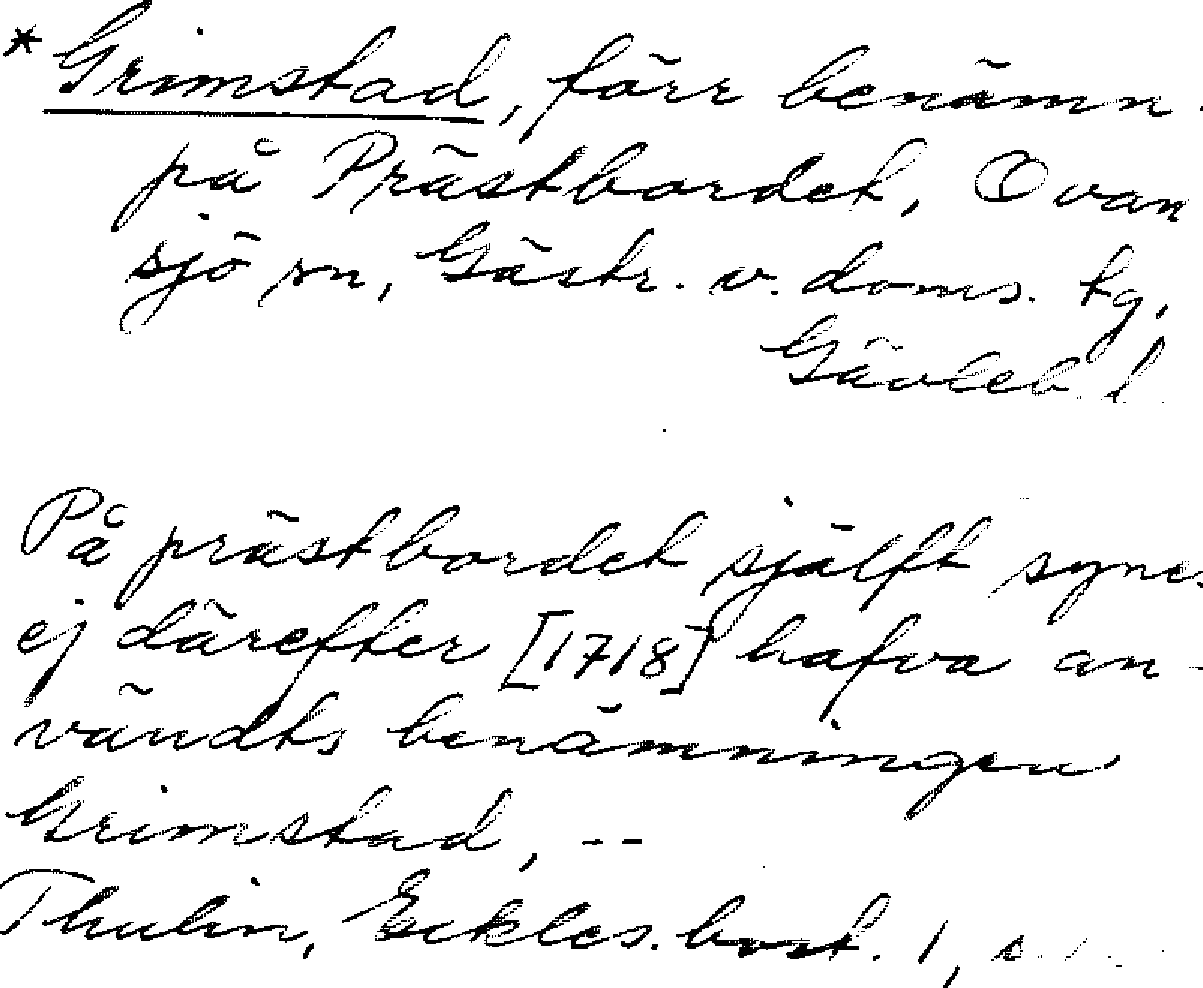 * Grimstad, förr benämn.
på Prästbordet, Ovan
sjö sn, Gästr. v. doms. tg,
Gävleb. l.
På prästbordet sjålft synes
ej därefter [1718] hafva an-
vändts benämningen
Grimstad, --
Thulin, Eckles. bost. 1, s.